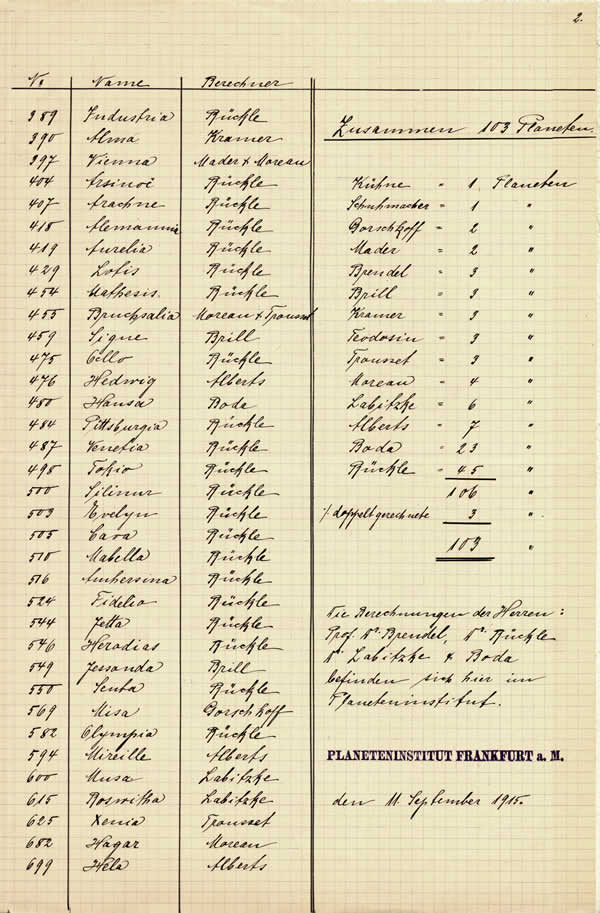 2.
No Name Berechner
389 Industria Rückle
390 Alma Kramer
397 Vienna Mader & Moreau
404 Arsinoë Rückle
407 Arachne Rückle
418 Alemannia Rückle
419 Aurelia Rückle
429 Lotis Rückle
454 Mathesis. Rückle
455 Bruchsalia Moreau & Trousset
459 Signe Brill
475 Ocllo Rückle
476 Hedwig Alberts
480 Hansa Boda
484 Pittsburgia Rückle
487 Venetia Rückle
498 Tokio Rückle
500 Selinur Rückle
503 Evelyn Rückle
505 Cava Rückle
510 Mabella Rückle
516 Amherstina Rückle
524 Fidelio Rückle
544 Jetta Rückle
546 Herodias Rückle
549 Jessonda Brill
550 Senta Rückle
569 Misa Borschkoff
582 Olympia Rückle
594 Mireille Alberts
600 Musa Labitzke
615 Roswitha Labitzke
625 Xenia Trousset
682 Hagar Moreau
699 Hela Alberts
Zusammen 103 Planeten.
Kühne = 1 Planeten
Schuhmacher = 1 "
Borschkoff = 2 "
Mader = 2 "
Brendel = 3 "
Brill = 3 "
Kramer = 3 "
Teodosiu = 3 "
Trousset = 3 "
Moreau = 4 "
Labitzke = 6 "
Alberts = 7 "
Boda = 23 "
Rückle = 45 "
106 "
./. doppelt gerechnete 3 "
103 "
Die Berechnungen der Herren:
Prof. Dr. Brendel, Dr. Rückle
Dr. Labitzke & Boda
befinden sich hier im
Planeteninstitut.
PLANETENINSTITUT FRANKFURT a. M.
den 11. September 1915.